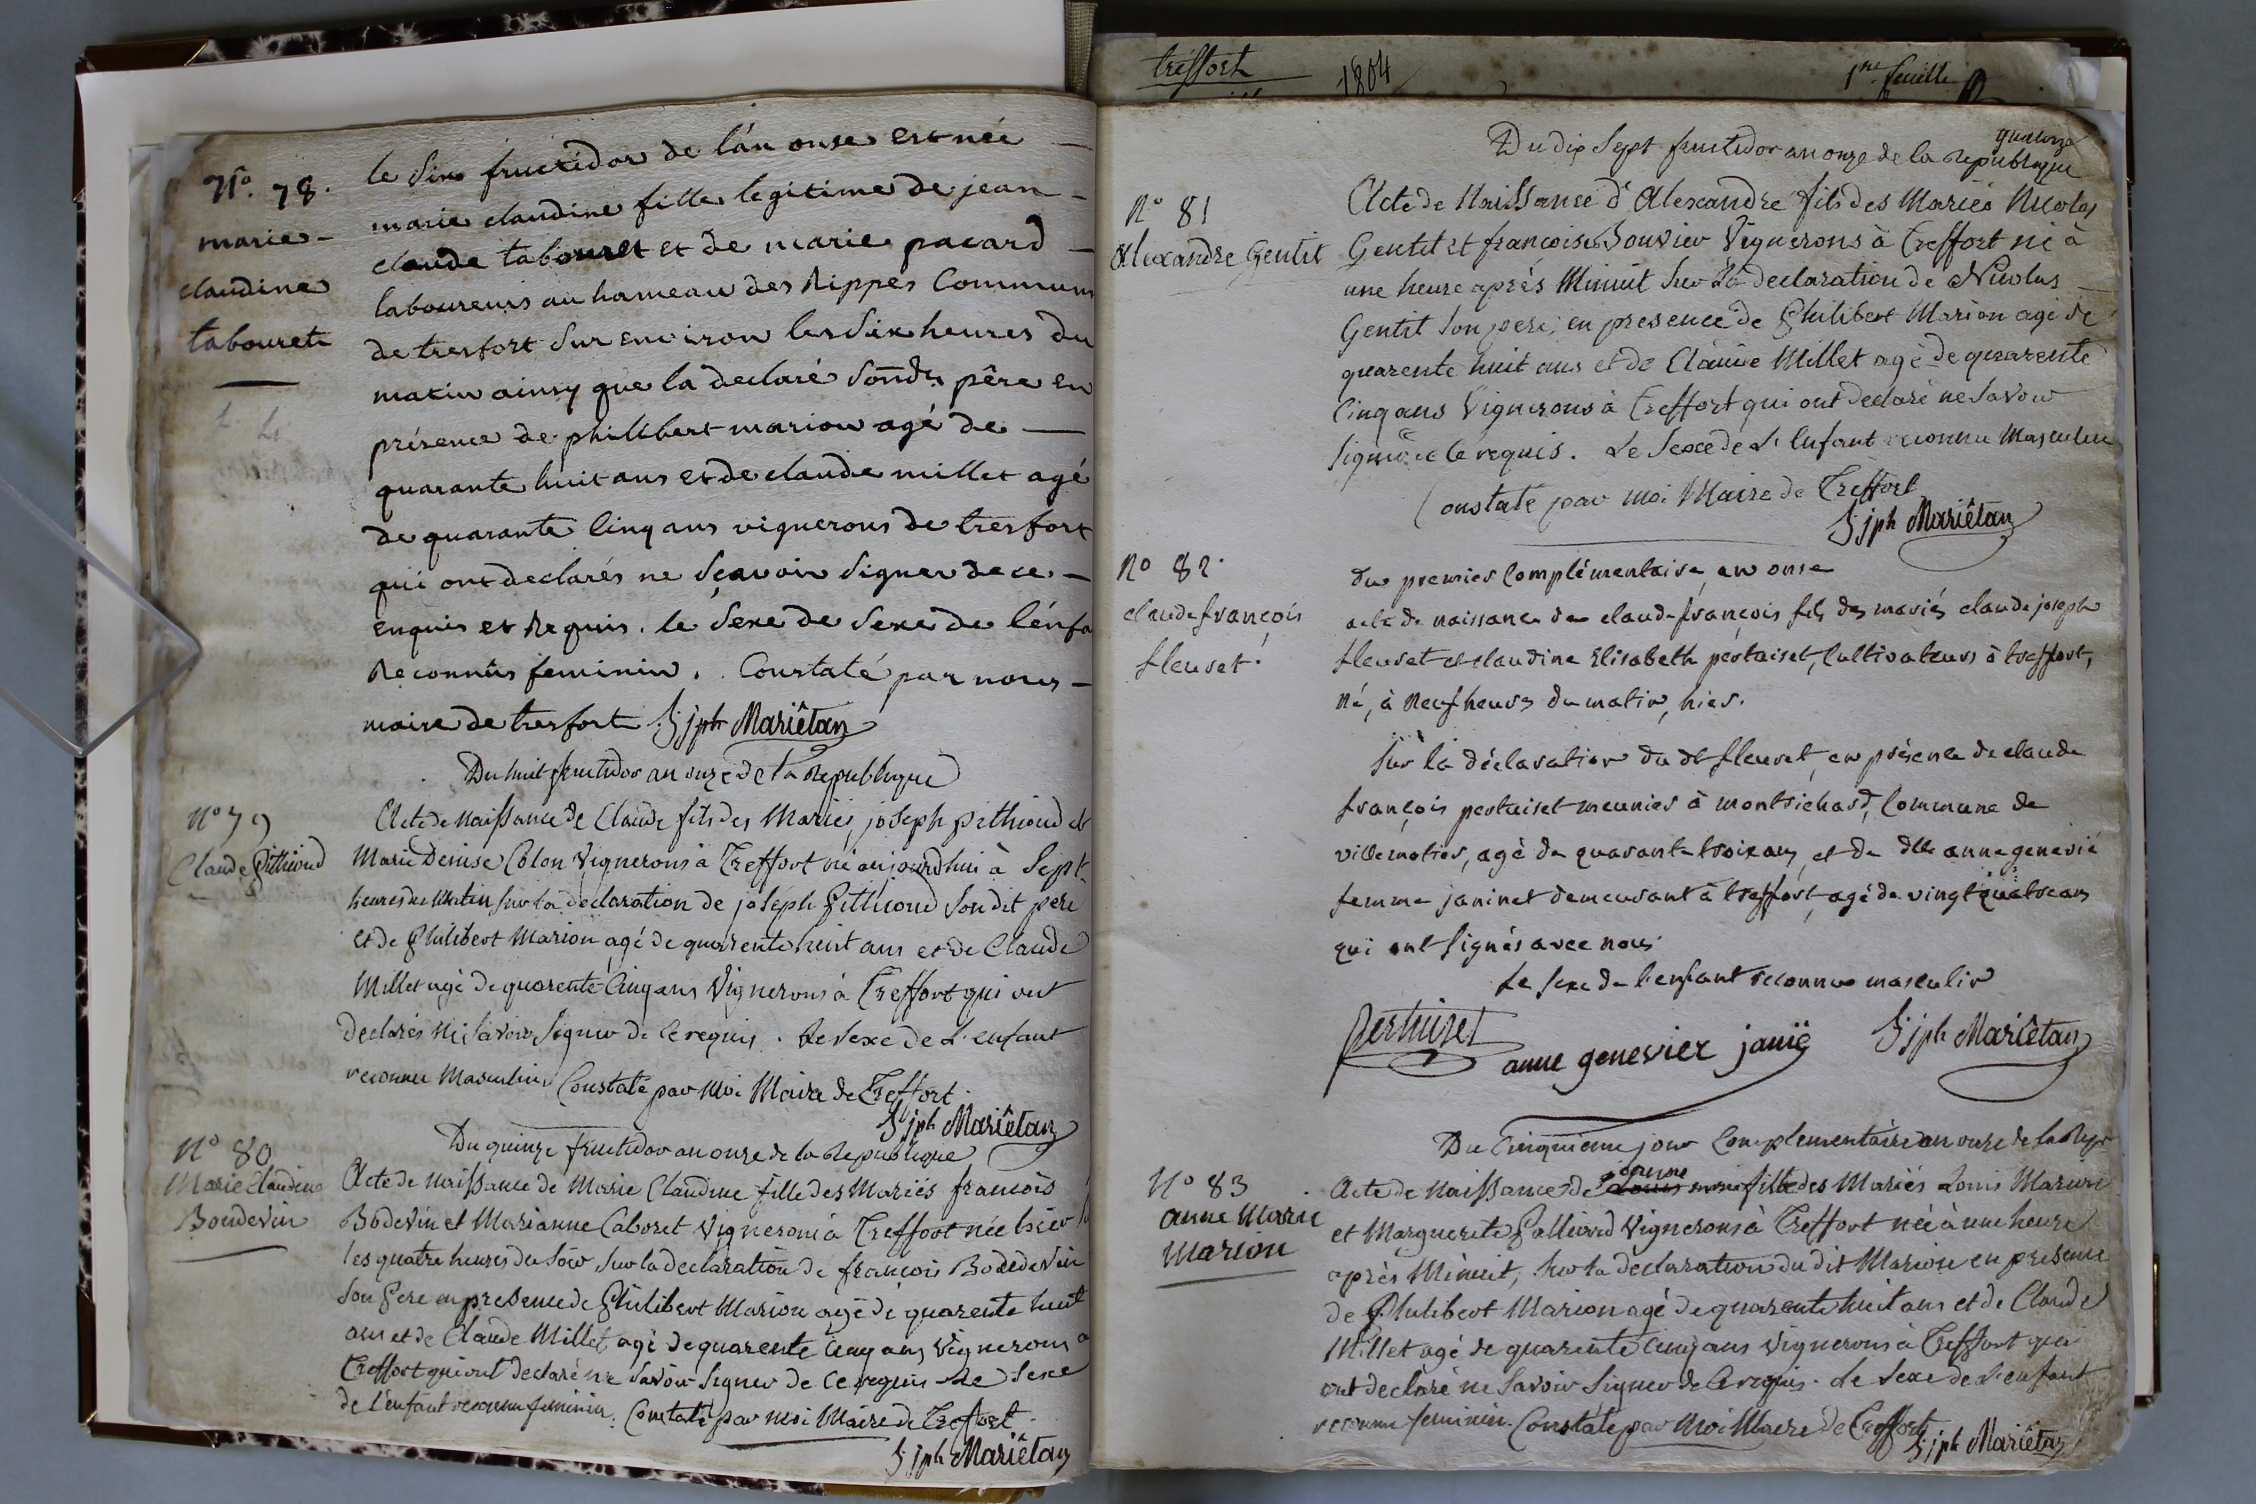 Nº. 78.
marie-
claudine
tabouret
le Six fructidor de l'an onse est née
marie claudine fille legitime de jean-
claude tabouret et de marie pacard
laboureurs au hameau des Rippes Commune
de tresfort sur environ les Six heures du
matin ainsy que la declaré sondt. père en
présence de philibert marion agé de
quarante huit ans et de claude millet agé
de quarante cinq ans vignerons de tresfort
qui ont declarés ne sçavoir signer de ce
enquis et Requis. le Sexe de Sexe de l'énfa
Reconnus feminin. Constaté par nous
maire de tresfort. Mariêtan
Du huit fructidor an onze de la Republique
Nº 79
Claude Pithioud
Acte de Naissance de Claude fils des Mariés joseph pithioud et
Marie Denise Colon Vignerons à Treffort né aujourdhui à Sept
heures du Matin, sur la declaration de joseph Pithioud Son dit pere
et de Philibert Marion agé de quarente huit ans et de Claude
Millet agé de quarente Cinq ans Vignerons à Treffort qui ont
declarés ne Savoir Signer de Ce requis. Le Sexe de L'enfant
reconnu Masculin Constaté par Moi Maire de Treffort.
jph Mariêtan
Du quinze fructidor an onze de la Republique
Nº 80
Marie Claudine
Boudevin
Acte de Naissance de Marie Claudine fille des Mariés francois
Bodevin et Marianne Caboret Vignerons à Treffort née hier
les quatre heures du Soir, sur la declaration de françois Bodedevin
Son Pere en presence de Philibert Marion agé de quarente huit
ans et de Claude Millet agé de quarente Cinq ans Vignerons a
Treffort qui ont declaré ne Savoir Signer de Ce requis Le Sexe
de L'enfant reconnu feminin. Constaté par Moi Maire de Treffort.
jph Mariêtan
treffort
1804
1re feuille
quatorze
Du dix Sept fructidor an onze de la republique
Nº 81
Alexandre Gentit
Acte de Naissance d'Alexandre fils des Mariés Nicolas
Gentit et françoise Bouvier Vignerons à Treffort né à
une heure aprés Minuit Sur La declaration de Nicolas
Gentit Son pere, en presence de Philibert Marion agé de
quarente huit ans et de Claude Millet agé de quarente
Cinq ans Vignerons à Treffort qui ont declaré ne Savoir
signer de Ce requis. Le Sexe de L'Enfant reconnu Masculin
Constaté par Moi Maire de Treffort
jph Mariêtan
Nº 82.
claude françois
fleuret.
Du premier Complémentaire, an onse
acte de naissance de claude françois fils des mariés claude joseph
fleuret et claudine Elisabeth pertuiset, Cultivateurs à treffort,
Né, à Neuf heures du matin, hier.
Sur la déclaration du dt fleuret, en présence de claude
françois pertuiset meunier à montrichard, Commune de
villemotier, agé de quarante trois ans, et de dlle anne genevié
femme janinet demeurant à treffort, agé de vingt quatre ans
qui ont signés avec nous.
Le sexe de l'enfant reconnu masculin
Pertuiset
anne genevier janiё
jph Mariêtan
Du Cinquieme jour Complementaire an onze de la Rep
Nº 83
anne Marie
Marion
Acte de Naissance de anne marie fille des Mariés Louis Marion
et Marguerite Galliard Vignerons à Treffort née à une heure
aprés Minuit, sur la declaration du dit Marion en presence
de Philibert Marion agé de quarente huit ans et de Claude
Millet agé de quarente Cinq ans Vignerons à Treffort qui
ont declaré ne Savoir Signer de Ce requis. Le Sexe de L'enfant
reconnu feminin. Constaté par Moi Maire de Treffort
jph Mariêtan